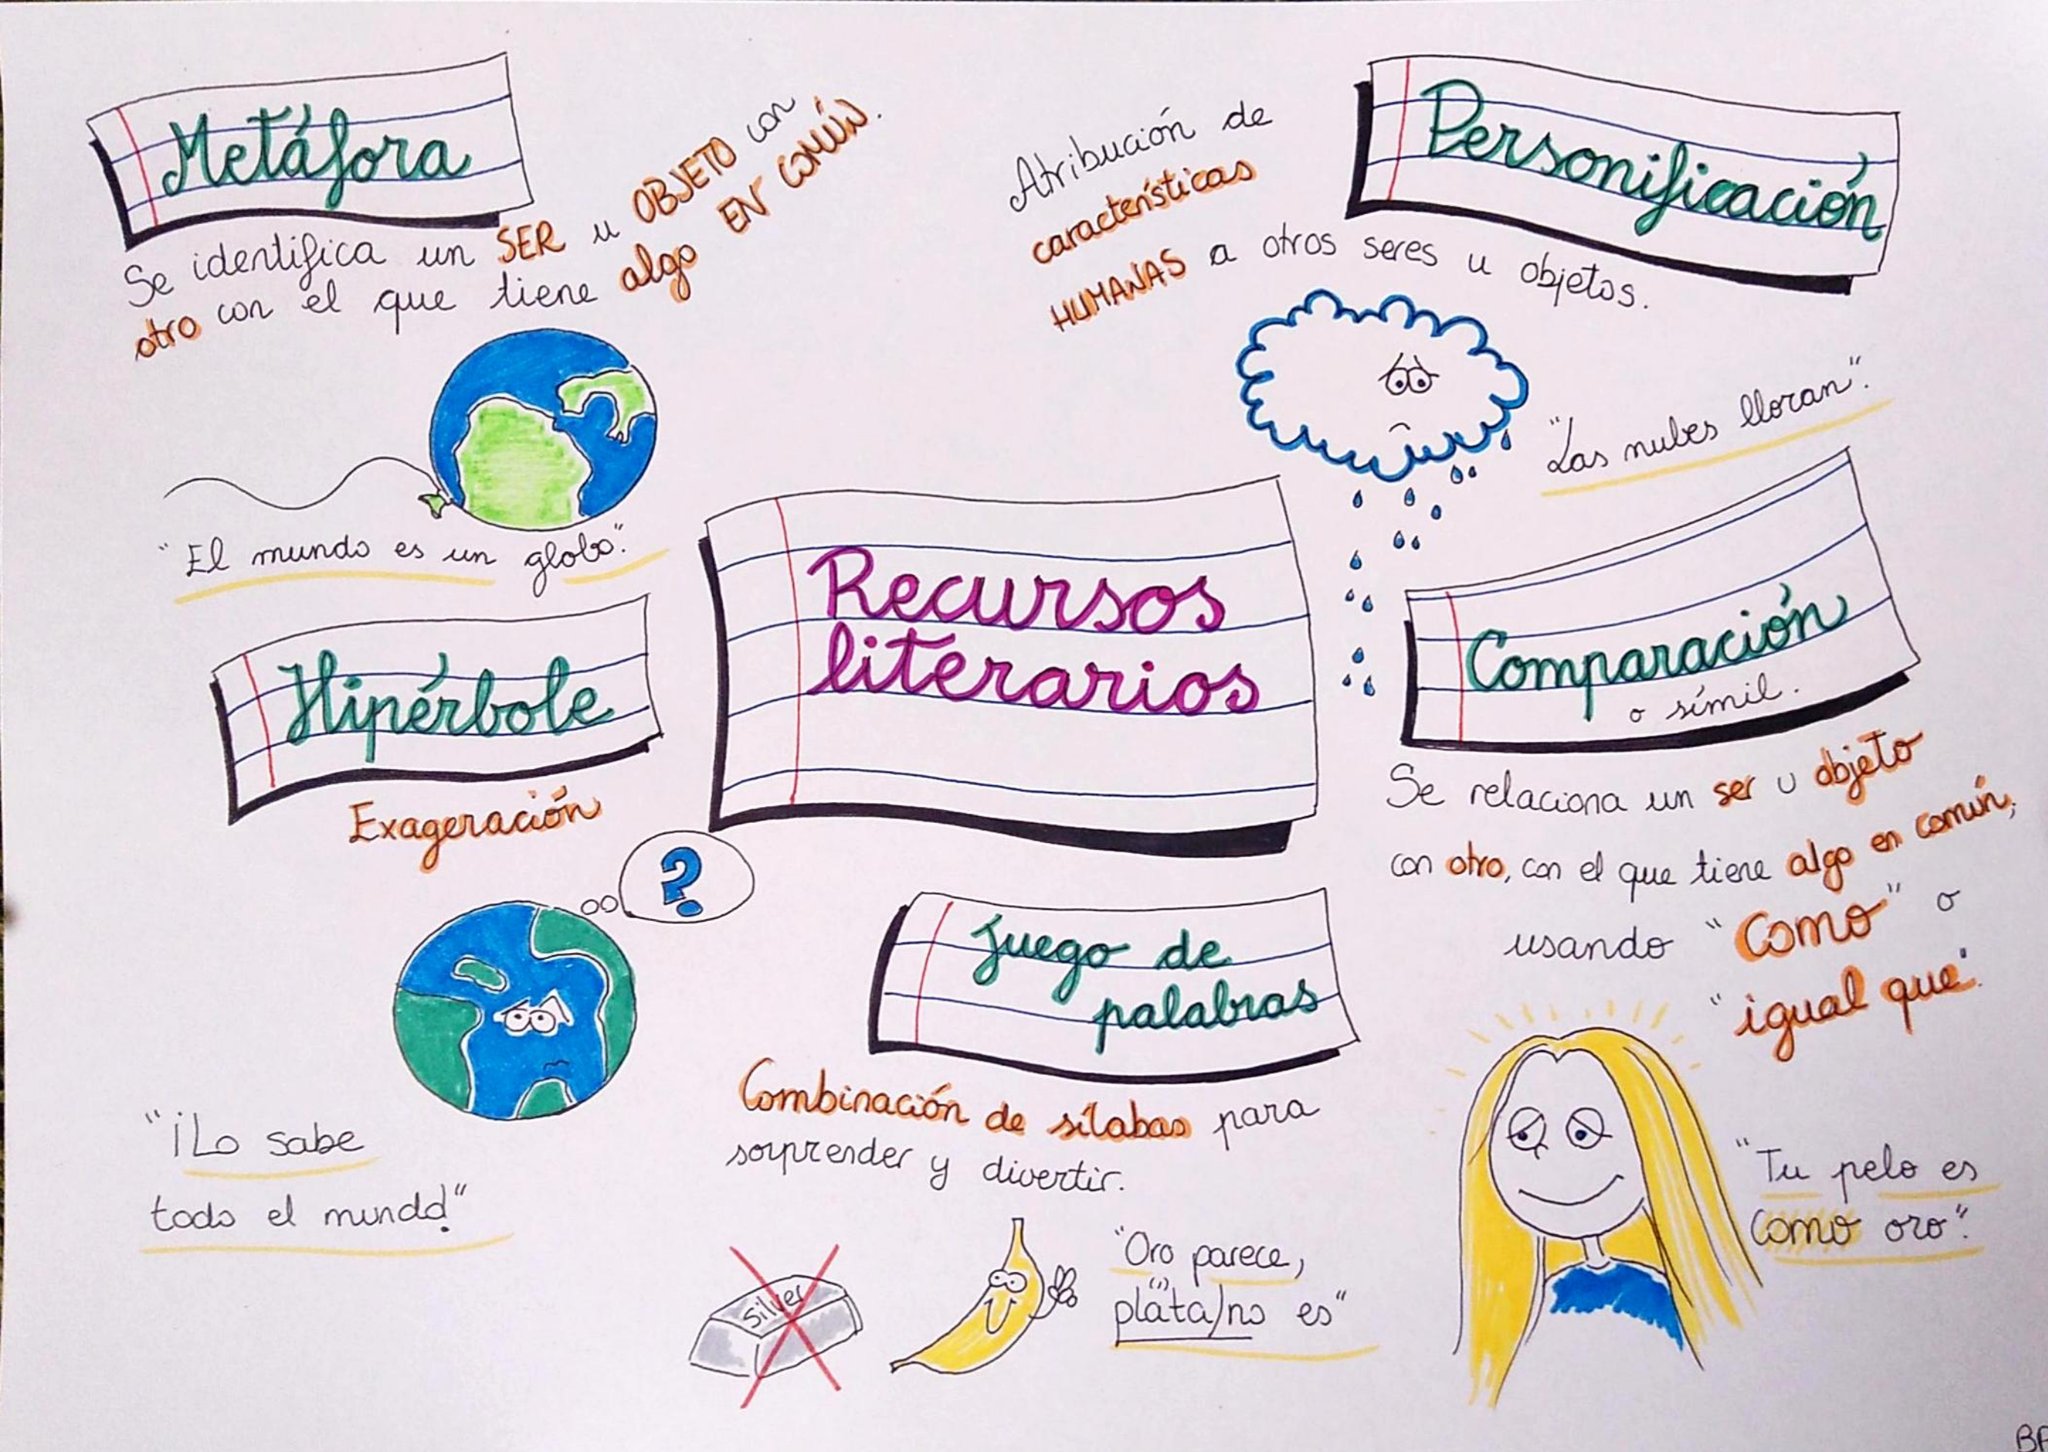 Metáfora
Se identifica un SER u OBJETO con
otro con el que tiene algo EN COMÚN.
"El mundo es un globo".
Personificación
Atribución de
características
HUMANAS a otros seres u objetos.
"Las nubes lloran".
Recursos
literarios
Hipérbole
Exageración
?
"¡Lo sabe
todo el mundo!"
Comparación
o símil.
Se relaciona un ser u objeto
con otro, con el que tiene algo en común,
usando "como" o
"igual que".
"Tu pelo es
como oro".
Juego de
palabras
Combinación de sílabas para
sorprender y divertir.
Silver
"Oro parece,
plata/no es"